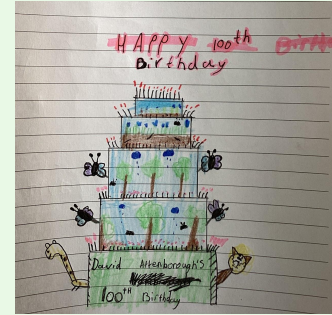 HAPPY 100th Birth
Birthday
David Attenborough's
100TH Birthday